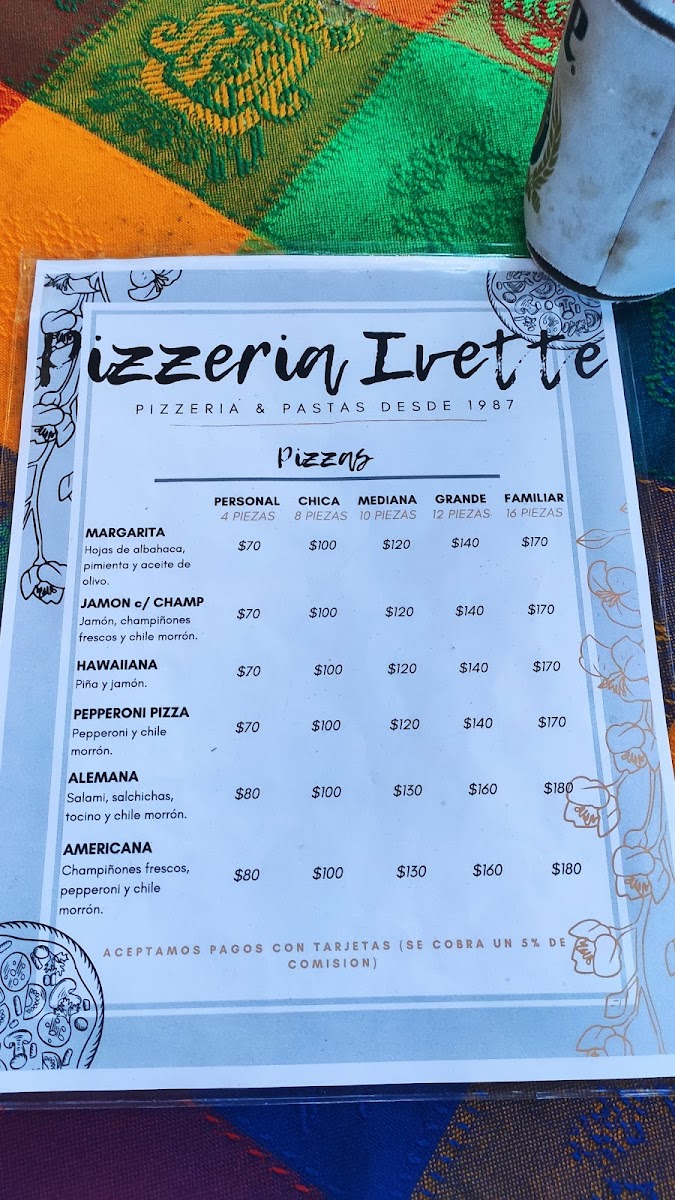 Pizzeria Ivette
PIZZERIA & PASTAS DESDE 1987
Pizzas
PERSONAL CHICA MEDIANA GRANDE FAMILIAR
4 PIEZAS 8 PIEZAS 10 PIEZAS 12 PIEZAS 16 PIEZAS
MARGARITA
Hojas de albahaca,
pimienta y aceite de
olivo.
$70 $100 $120 $140 $170
JAMON c/ CHAMP
Jamón, champiñones
frescos y chile morrón.
$70 $100 $120 $140 $170
HAWAIIANA
Piña y jamón.
$70 $100 $120 $140 $170
PEPPERONI PIZZA
Pepperoni y chile
morrón.
$70 $100 $120 $140 $170
ALEMANA
Salami, salchichas,
tocino y chile morrón.
$80 $100 $130 $160 $180
AMERICANA
Champiñones frescos,
pepperoni y chile
morrón.
$80 $100 $130 $160 $180
ACEPTAMOS PAGOS CON TARJETAS (SE COBRA UN 5% DE
COMISION)